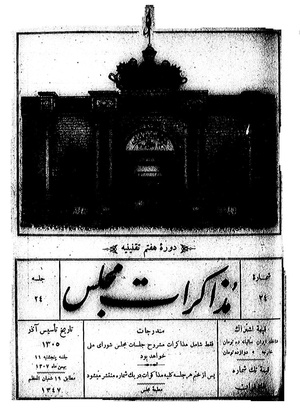 دورهٔ هفتم تقنینیه
جلسه
۲۴
مذاکرات مجلس
شماره
۲۴
تاریخ تأسیس آذر
۱۳۰۵
جلسه پنجشنبه ۱۱
بهمن ماه ۱۳۰۷
مطابق ۱۹ شعبان المعظم
۱۳۴۷
مندرجات
فقط شامل مذاکرات مشروح جلسات مجلس شورای ملی
خواهد بود
پس از ختم هر جلسه کلیه مذاکرات در یک شماره منتشر میشود
مطبعهٔ مجلس
قیمت اشتراک
سالیانه ده تومان
خارجه دوازده تومان
قیمت تک شماره